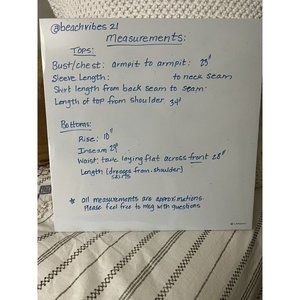 @beachvibes 21
Measurements:
Tops:
Bust/chest: armpit to armpit: 23"
Sleeve Length: to neck seam
Shirt length from back seam to seam:
Length of top from shoulder 34"
Bottoms:
Rise: 10"
Inseam 29"
Waist; taken laying flat across front 28"
Length (dresses from shoulder)
skirts
* all measurements are approximations.
Please feel free to msg with questions